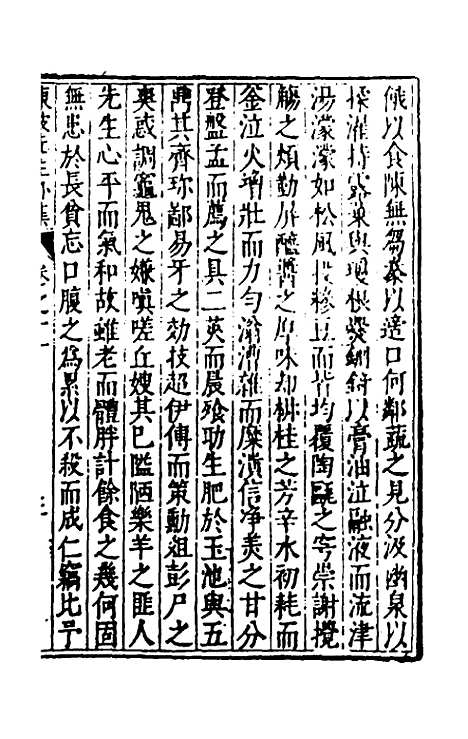 餓以食陳無芻豢以適口何鄰蔬之見分汲幽泉以
揉濯持露葉與瓊根爨鉶錡以膏油泣融液而流津
湯濛濛如松風投糝豆而皆均覆陶甌之穹崇謝攪
觴之煩勤屏醯醬之厚味却椒桂之芳辛水初耗而
釜泣火增壯而力勻滃漕雜而糜潰信净美之甘分
登盤盂而薦之具二英而晨飱功生肥於玉池與五
鼎其齊珍鄙易牙之効技超伊傅而策勳沮彭尸之
爽惑調竈鬼之嫌嗔嗟丘嫂其已隘陋樂羊之匪人
先生心平而氣和故雖老而體胖計餘食之幾何固
無患於長貧忘口腹之爲累以不殺而成仁竊比予
東坡先生外集 卷之二